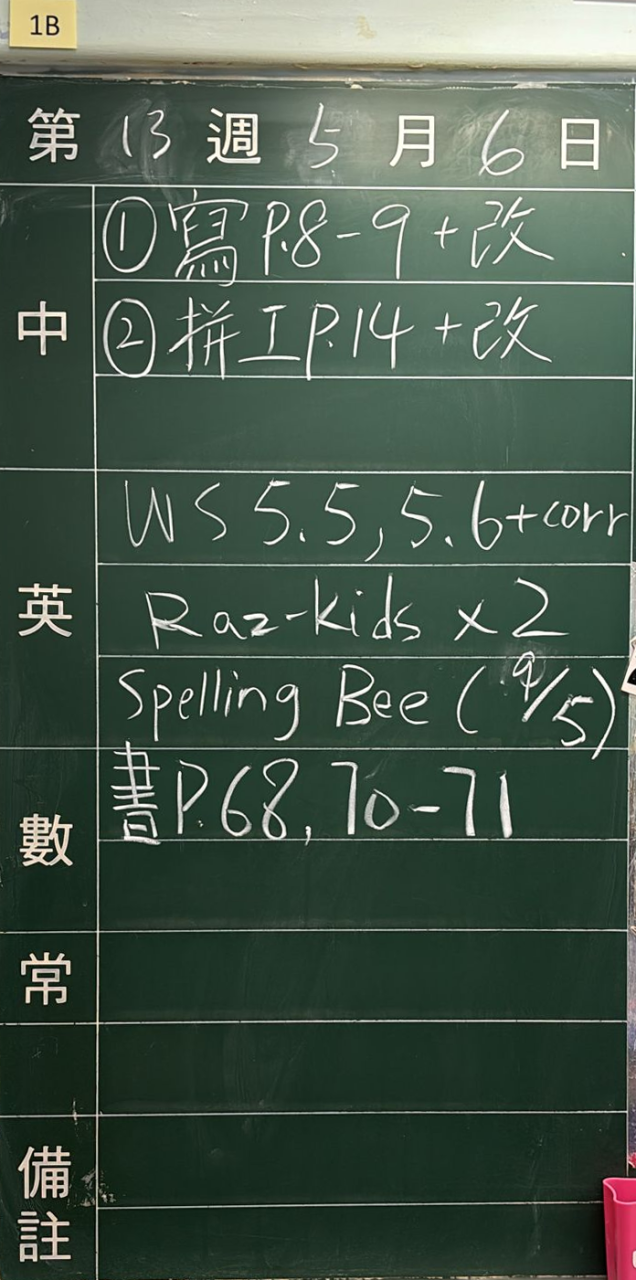 1B
第 13 週 5 月 6 日
中
① 寫 P.8-9 + 改
② 拼工 P.14 + 改
英
WS 5.5, 5.6 + corr
Raz-kids x2
Spelling Bee (9/5)
數
書 P.68, 70-71
常
備註